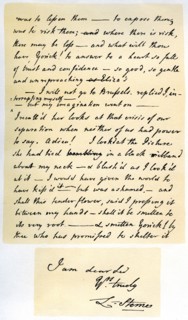 was to lessen them — to expose them,
was to risk them; and where there is risk,
there may be loss — and what will thou
have, Yorick! to answer to a heart so full
of trust and confidence — so good, so gentle
and unreproaching
— I will not go to Brussels, replied I, in-
terrupting myself —
— but my imagination went on —
I recall'd her looks at that crisis of our
separation when neither of us had power
to say, Adieu! I look'd at the picture
she had tied in a black ribband
about my neck — & blush'd as I look'd
at it — I would have given the world to
have kiss'd it — but was ashamed — and
shall this tender flower, said I, pressing it
between my hands — shall it be smitten to
its very root — & smitten, Yorick! by
thee who has promised to shelter it
I am dear Sir
Yrs truly
L. Sterne